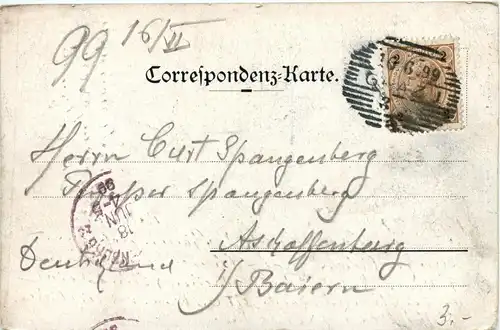 99 16/VI
Correspondenz-Karte.
16.6.99
Herrn Curt Spangenberg
Spangenberg
Aschaffenburg
Deutschland
i/Baiern
18 JUN
3.-